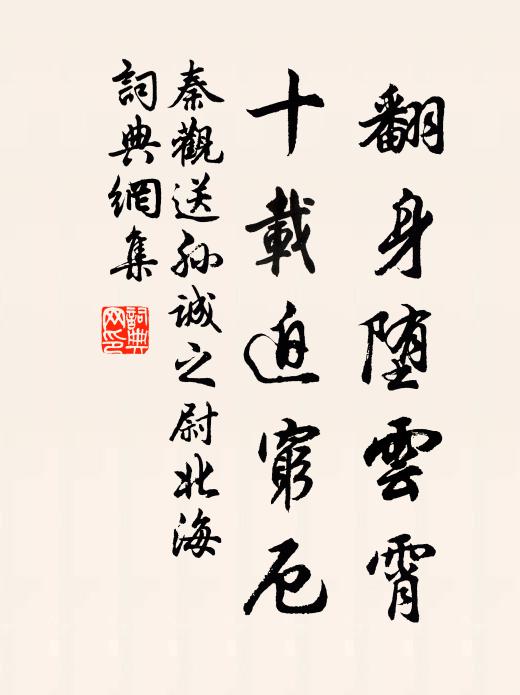 翻身堕雲霄
十載迫窮厄
秦觀送孙誠之尉北海
詞典網集
詞典网印